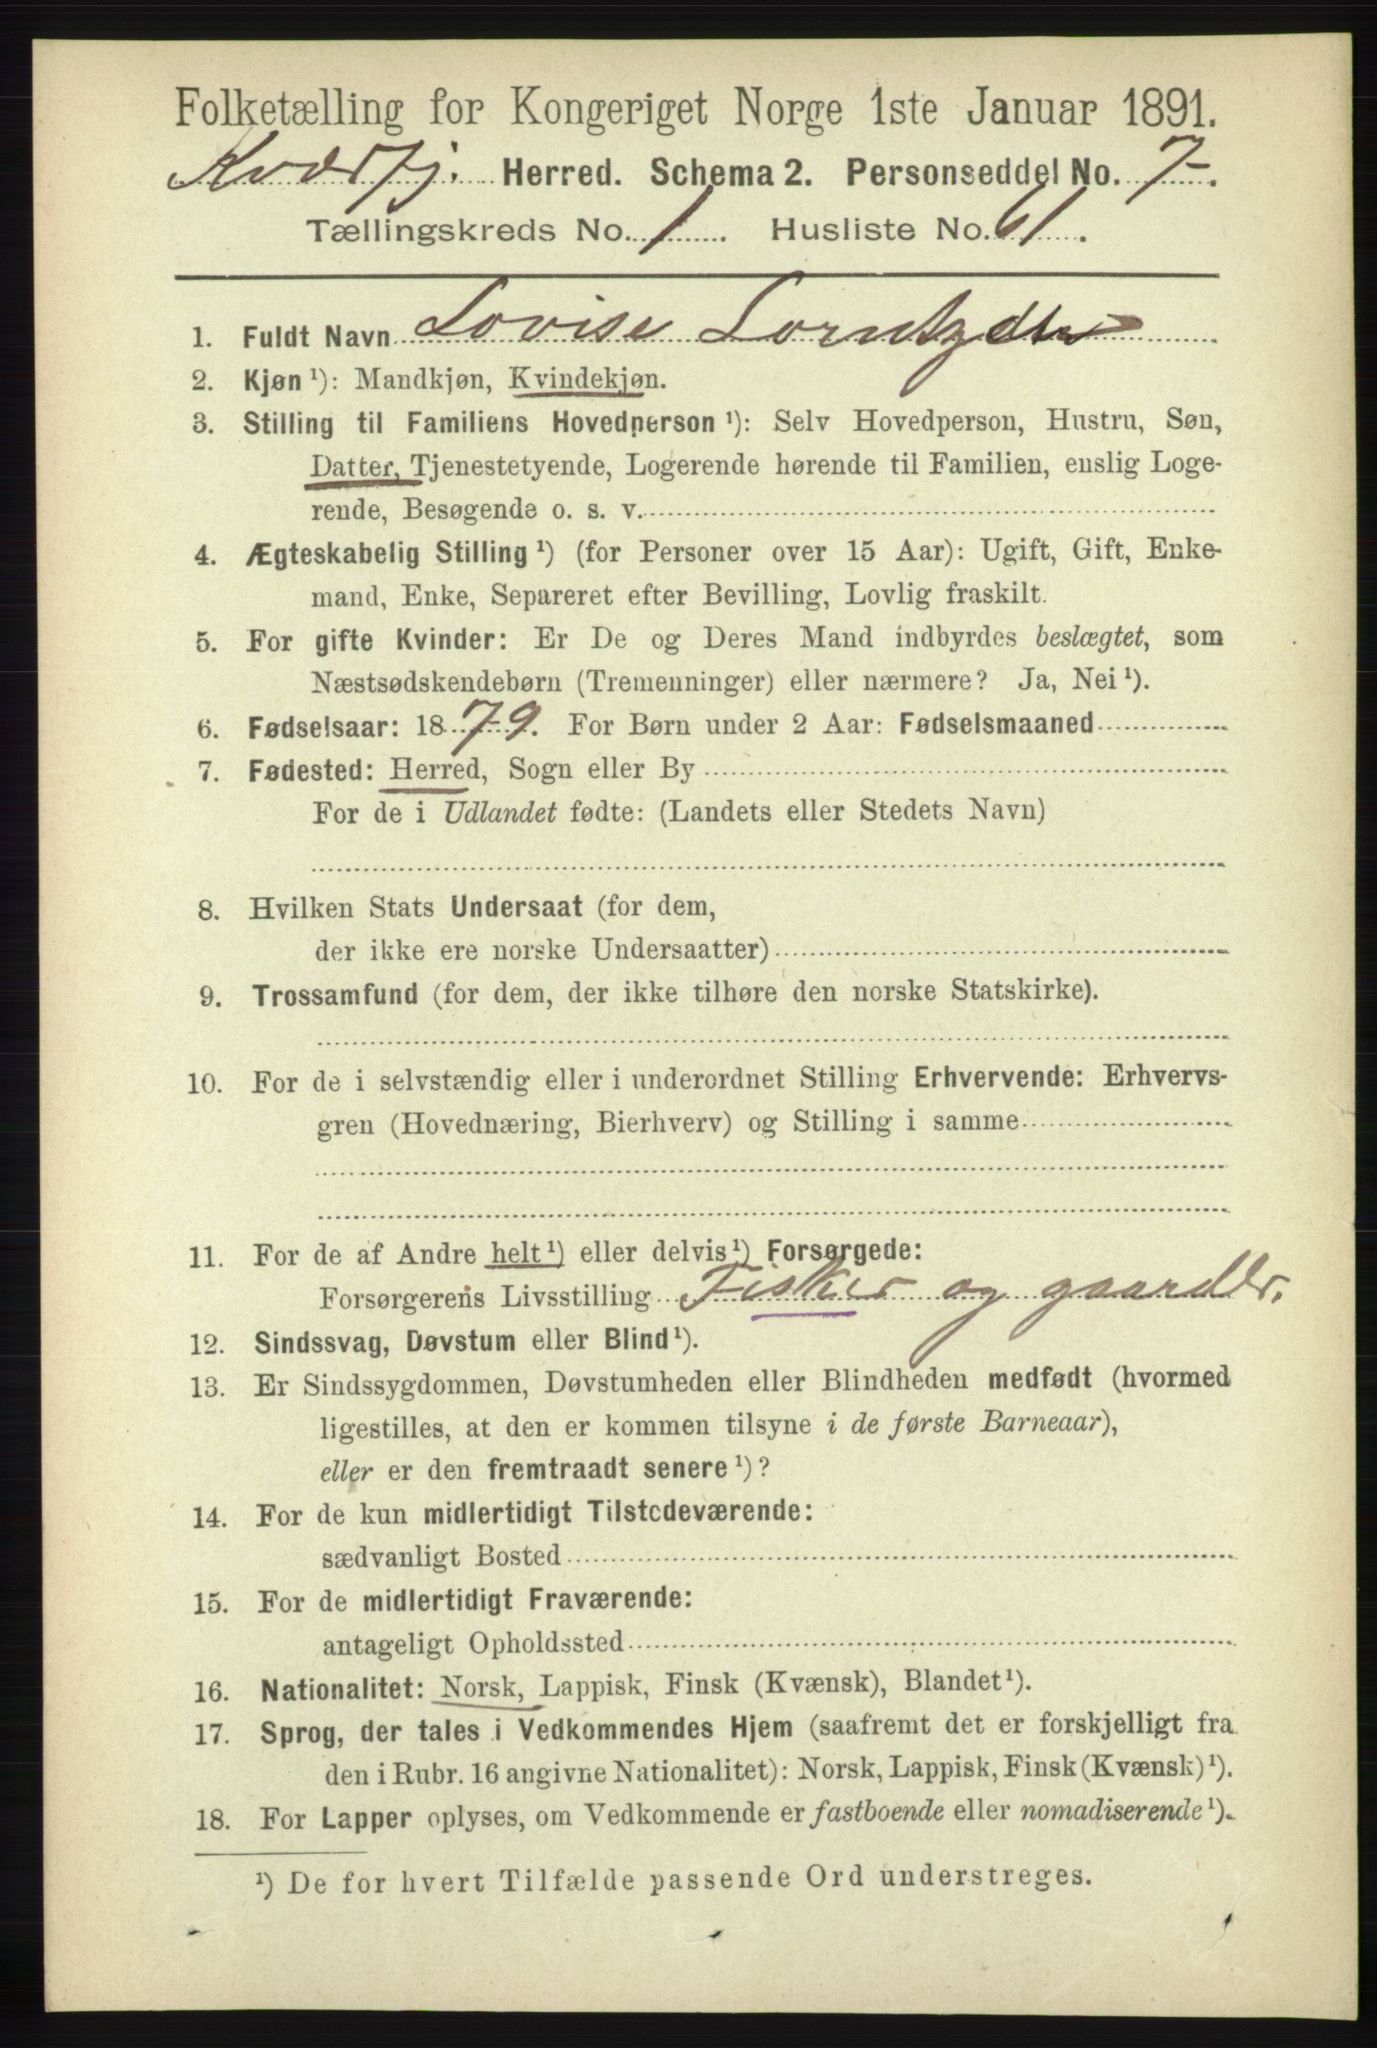 Folketælling for Kongeriget Norge 1ste Januar 1891.
Kvæfj. Herred. Schema 2. Personseddel No. 7
Tællingskreds No. 1. Husliste No. 61.
1. Fuldt Navn Lovise Lorntzdtr
2. Kjøn ¹): Mandkjøn, Kvindekjøn.
3. Stilling til Familiens Hovedperson ¹): Selv Hovedperson, Hustru, Søn,
Datter, Tjenestetyende, Logerende hørende til Familien, enslig Loge-
rende, Besøgende o. s. v.
4. Ægteskabelig Stilling ¹) (for Personer over 15 Aar): Ugift, Gift, Enke-
mand, Enke, Separeret efter Bevilling, Lovlig fraskilt.
5. For gifte Kvinder: Er De og Deres Mand indbyrdes beslægtet, som
Næstsødskendebørn (Tremenninger) eller nærmere? Ja, Nei ¹).
6. Fødselsaar: 1879. For Børn under 2 Aar: Fødselsmaaned
7. Fødested: Herred, Sogn eller By
For de i Udlandet fødte: (Landets eller Stedets Navn)
8. Hvilken Stats Undersaat (for dem,
der ikke ere norske Undersaatter)
9. Trossamfund (for dem, der ikke tilhøre den norske Statskirke).
10. For de i selvstændig eller i underordnet Stilling Erhvervende: Erhvervs-
gren (Hovednæring, Bierhverv) og Stilling i samme
11. For de af Andre helt ¹) eller delvis ¹) Forsørgede:
Forsørgerens Livsstilling Fisker og gaardbr.
12. Sindssvag, Døvstum eller Blind ¹).
13. Er Sindssygdommen, Døvstumheden eller Blindheden medfødt (hvormed
ligestilles, at den er kommen tilsyne i de første Barneaar),
eller er den fremtraadt senere ¹)?
14. For de kun midlertidigt Tilstedeværende:
sædvanligt Bosted
15. For de midlertidigt Fraværende:
antageligt Opholdssted
16. Nationalitet: Norsk, Lappisk, Finsk (Kvænsk), Blandet ¹).
17. Sprog, der tales i Vedkommendes Hjem (saafremt det er forskjelligt fra
den i Rubr. 16 angivne Nationalitet): Norsk, Lappisk, Finsk (Kvænsk) ¹).
18. For Lapper oplyses, om Vedkommende er fastboende eller nomadiserende ¹).
¹) De for hvert Tilfælde passende Ord understreges.